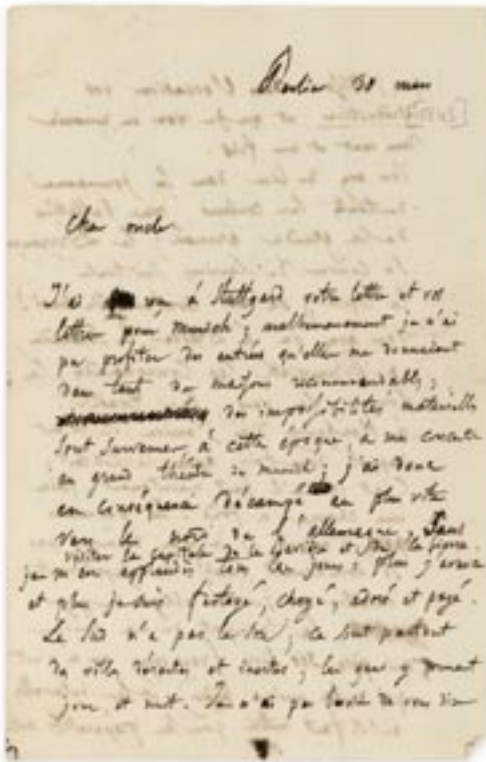 Berlin 30 mars
Cher oncle
J'ai reçu à Stuttgard votre lettre et vos
lettres pour Munich ; malheureusement je n'ai
pu profiter des entrées qu'elles me donnaient
dans tant de maisons recommandables ;
des impossibilités matérielles
sont survenues à cette époque, à mon concert
au grand théâtre de munich ; j'ai donc
en conséquence décampé au plus vite
vers le nord de l'allemagne, sans
visiter la capitale de la Bavière et
je m'en applaudis tous les jours ; plus j'avance
et plus je suis fêtoyé, choyé, adoré et payé.
Le Sud n'a pas le sou ; ce sont partout
des villes désertes et inertes ; les gens y dorment
jour et nuit. Je n'ai pas besoin de vous dire